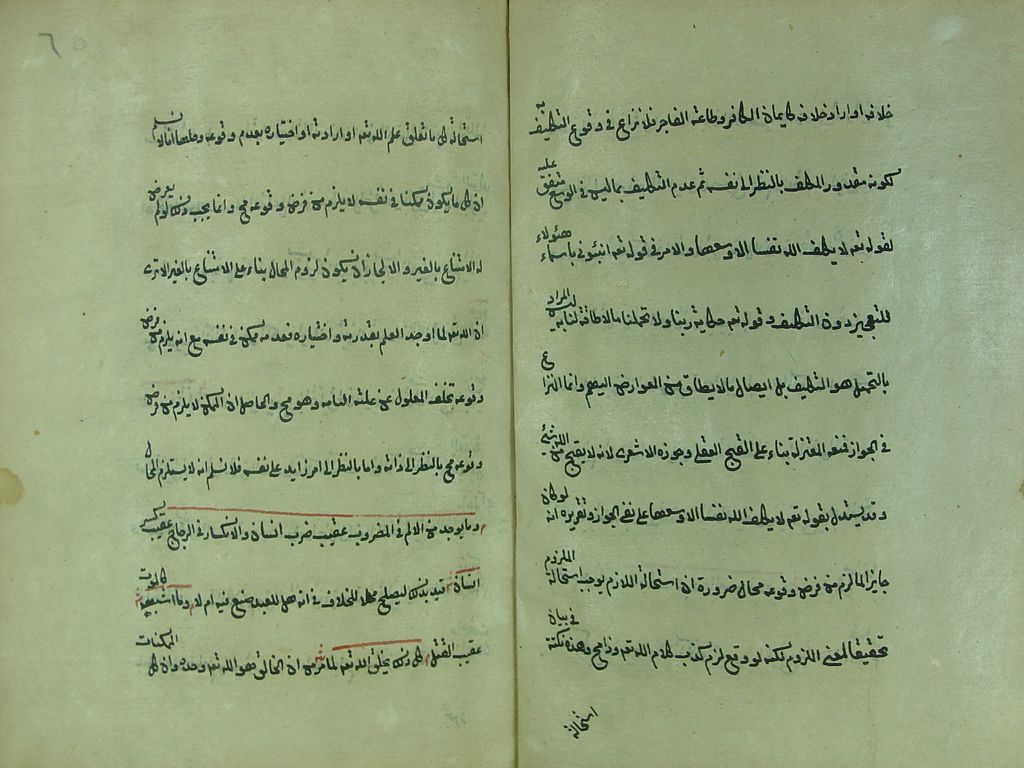 خلافه او اراد خلافه كايمان الكافر وطاعة الفاجر فلا نزاع في وقوع التكليف به
لكونه مقدور المكلف بالنظر الى نفسه ثم عدم التكليف بما ليس في الوسع متفق عليه
لقوله تعه لا يكلف الله نفسا الا وسعها والامر في قوله تعه انبئوني باسماء هؤلاء
للتعجيز دون التكليف وقوله تعه حكاية ربنا ولا تحملنا ما لا طاقة لنا به ليس المراد
بالتحميل هو التكليف بل ايصال ما لا يطاق من العوارض اليهم وانما النزاع
في الجواز فمنعه المعتزلة بناء على القبح العقلي وجوزه الاشعرى لانه لا يقبح من الله شئ
وقد يستدل بقوله تعه لا يكلف الله نفسا الا وسعها على نفي الجواز وتقريره انه لو كان
جايزا لما لزم من فرض وقوعه محال ضرورة ان استحالة اللازم يوجب استحالة الملزوم
تحقيقا لمعنى اللزوم لكنه لو وقع لزم كذب كلام الله تعه وذا مح وهذه نكتة في بيان
استحالة
٦٥
استحالة كل ما تعلق علم الله تعه او ارادته او اختياره بعدم وقوعه وحلها انا لا نسلم
ان كل ما يكون ممكنا في نفسه لا يلزم من فرض وقوعه مح وانما يجب ذلك لو لم يعرض
له الامتناع بالغير والا لجاز ان يكون لزوم المحال بناء على الامتناع بالغير الا ترى
ان الله تعه لما اوجد العلم بقدرته واختياره فعدمه ممكن في نفسه مع انه يلزم من فرض
وقوعه تخلف المعلول عن علته التامه وهو مح والحاصل ان الممكن لا يلزم من فرض
وقوعه مح بالنظر الى ذاته واما بالنظر الى امر زايد على نفسه فلا نسلم انه لا يستلزم المحال
وما يوجد من الالم في المضروب عقيب ضرب انسان والانكسار في الزجاج عقيب كسر
انسان قيد بذلك ليصلح محلا للخلاف في انه هل للعبد صنع فيه ام لا وما اشبهه كالموت
عقيب القتل كل ذلك يخلق الله تعه لما مر من ان الخالق هو الله تعه وحده وان كل الممكنات